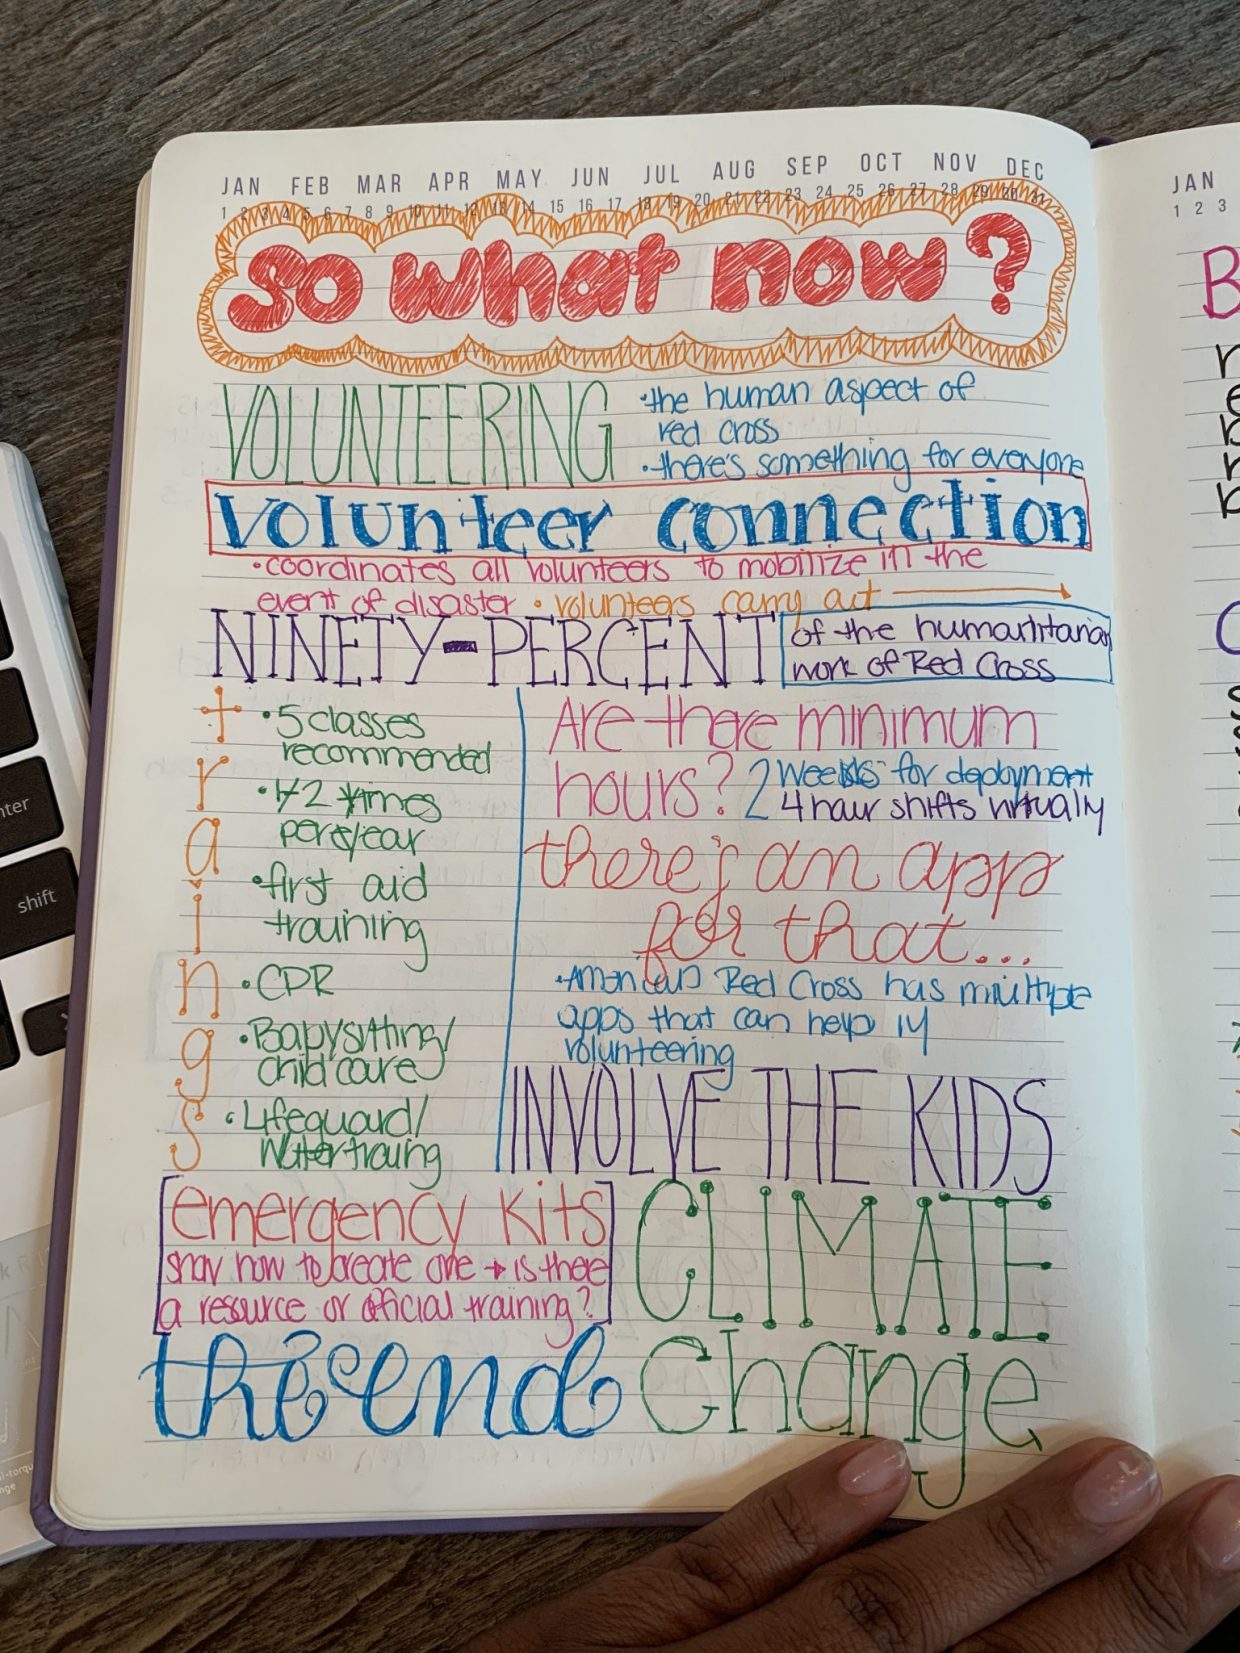 JAN FEB MAR APR MAY JUN JUL AUG SEP OCT NOV DEC
1 2 3 4 5 6 7 8 9 10 11 12 13 14 15 16 17 18 19 20 21 22 23 24 25 26 27 28 29 30 31
So what now?
VOLUNTEERING
• the human aspect of
red cross
• there's something for everyone
Volunteer connection
• coordinates all volunteers to mobilize in the
event of disaster • volunteers carry out →
NINETY-PERCENT
of the humantitarian
work of Red Cross
trainings
• 5 classes
recommended
• 1-2 times
per year
• first aid
training
• CPR
• Babysitting/
child care
• Lifeguard/
Water traiung
Are there minimum
hours? 2 weeks for deployment
4 hour shifts virtually
there's an app
for that...
• American Red Cross has multiple
apps that can help in
volunteering
INVOLVE THE KIDS
emergency kits
how to create one → is there
a resource or official training?
CLIMATE
Change
the end
JAN
1 2 3
B
enter
shift